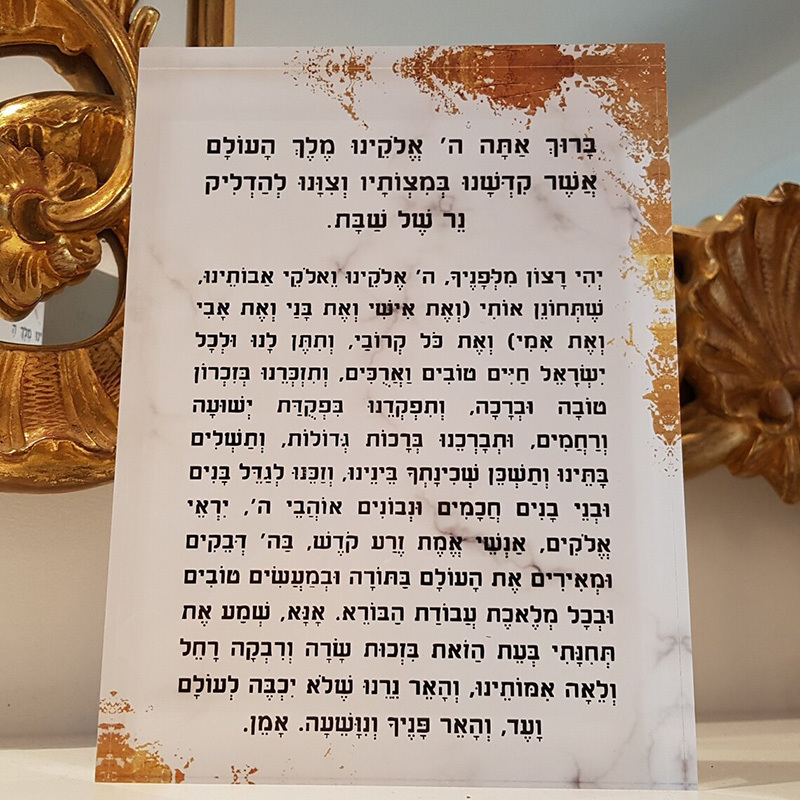 בָּרוּךְ אַתָּה ה' אֱלֹקֵינוּ מֶלֶךְ הָעוֹלָם
אֲשֶׁר קִדְּשָׁנוּ בְּמִצְוֹתָיו וְצִוָּנוּ לְהַדְלִיק
נֵר שֶׁל שַׁבָּת.
יְהִי רָצוֹן מִלְּפָנֶיךָ, ה' אֱלֹקֵינוּ וֵאלֹקֵי אֲבוֹתֵינוּ,
שֶׁתְּחוֹנֵן אוֹתִי (וְאֶת אִישִׁי וְאֶת בָּנַי וְאֶת אָבִי
וְאֶת אִמִּי) וְאֶת כֹּל קְרוֹבַי, וְתִתֵּן לָנוּ וּלְכָל
יִשְׂרָאֵל חַיִּים טוֹבִים וַאֲרֻכִּים, וְתִזְכְּרֵנוּ בְּזִכְרוֹן
טוֹבָה וּבְרָכָה, וְתִפְקְדֵנוּ בִּפְקֻדַּת יְשׁוּעָה
וְרַחֲמִים, וּתְבָרְכֵנוּ בְּרָכוֹת גְּדוֹלוֹת, וְתַשְׁלִים
בָּתֵּינוּ וְתַשְׁכֵּן שְׁכִינָתְךָ בֵּינֵינוּ, וְזַכֵּנוּ לְגַדֵּל בָּנִים
וּבְנֵי בָנִים חֲכָמִים וּנְבוֹנִים אוֹהֲבֵי ה', יִרְאֵי
אֱלֹקִים, אַנְשֵׁי אֱמֶת זֶרַע קֹדֶשׁ, בַּה' דְּבֵקִים
וּמְאִירִים אֶת הָעוֹלָם בַּתּוֹרָה וּבְמַעֲשִׂים טוֹבִים
וּבְכָל מְלֶאכֶת עֲבוֹדַת הַבּוֹרֵא. אָנָּא, שְׁמַע אֶת
תְּחִנָּתִי בְּעֵת הַזֹּאת בִּזְכוּת שָׂרָה וְרִבְקָה רָחֵל
וְלֵאָה אִמּוֹתֵינוּ, וְהָאֵר נֵרֵנוּ שֶׁלֹּא יִכְבֶּה לְעוֹלָם
וָעֶד, וְהָאֵר פָּנֶיךָ וְנִוָּשֵׁעָה. אָמֵן.